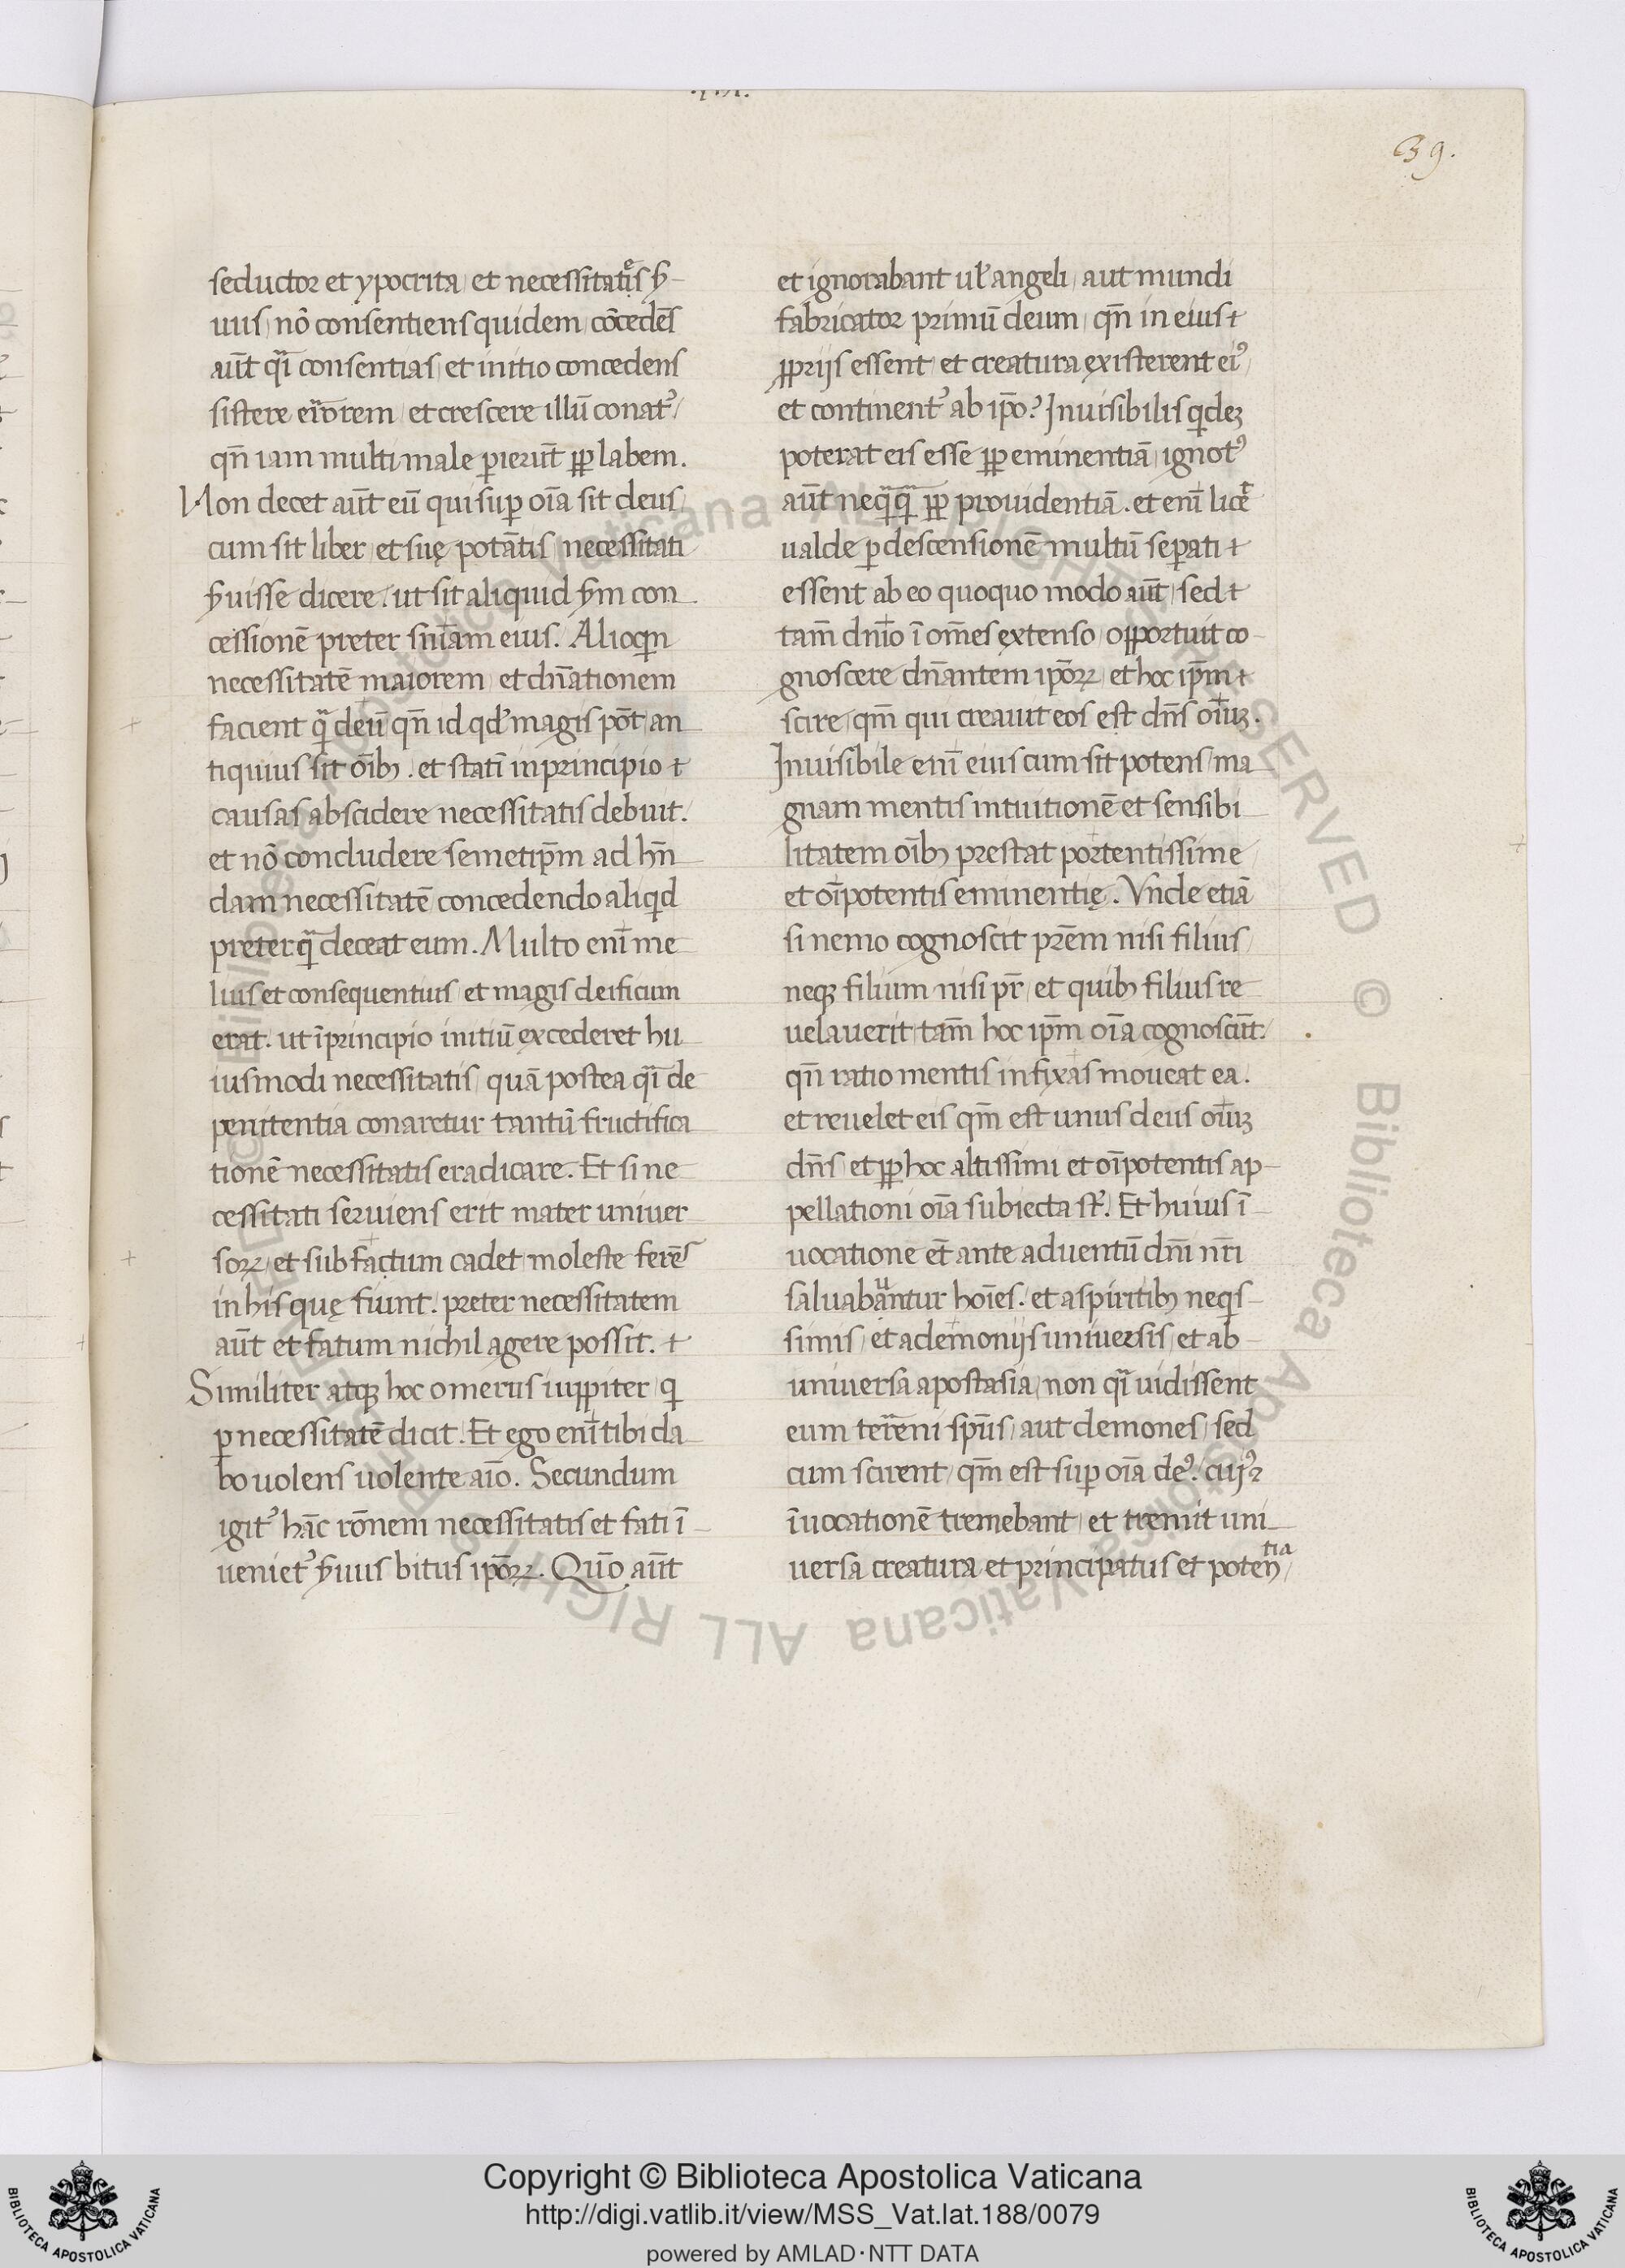 39.
seductor et ypocrita, et necessitatis s̄
uus, nō consentiens quidem, cōcedēs
aūt q̄i consentias, et initio concedens
sistere eirorem, et crescere illū conatꝰ,
qn̄ iam multi male ꝑierūt ꝓp labem.
Non decet aūt eū qui suꝑ oīa sit deus,
cum sit liber, et suę potātis, necessitati
s̄uisse dicere, ut sit aliquid s̄m con
cessionē preter sniam eius. Alioqn
necessitatē maiorem, et dn̄ationem
facient q̄ deū qn̄ id qd' magis pōt, an
tiquius sit oīb; . et statī in principio +
causas abscidere necessitatis debuit.
et nō concludere semetip̄m ad hn̄
dam necessitatē concedendo aliqd
preterq̄ deceat eum. Multo enī me
lius et consequentius, et magis deificum
erat. ut īprincipio initiū excederet hu
iusmodi necessitatis, quā postea q̄i de
penitentia conaretur tantū fructifica
tionē necessitatis eradicare. Et si ne
cessitati seruiens erit mater univer
soꝝ, et sub factum cadet, moleste ferēs
in his quę fiunt. preter necessitatem
aūt et fatum nichil agere possit. +
Similiter atqꝫ hoc omerus iuppiter, q
ꝑ necessitatē dicit. Et ego enī tibi da
bo uolens uolente aīo. Secundum
igitꝰ hāc rōnem necessitatis et fati ī
uenietꝰ s̄uus bitus ipōꝝ. Quō aūt
et ignorabant ul' angeli, aut mundi
fabricator primū deum, qn̄ in eius +
ꝓprijs essent, et creatura existerent eiꝰ,
et continentꝰ ab ip̄o? Inuisibilis qdeꝫ
poterat eis esse ꝓp eminentiā, ignotꝰ
aūt neq̄q̄ ꝓp prouidentiā. et enī licē
ualde ꝑ descensionē multū seꝑati +
essent ab eo quoquo modo aūt, sed +
tam̄ dnīo ī om̄es extenso, oꝓportuit co
gnoscere dn̄antem ipōꝝ, et hoc ip̄m +
scire, qm̄ qui creauit eos est dn̄s oīuꝫ.
Inuisibile enī eius cum sit potens, ma
gnam mentis intuitionē et sensibi
litatem oīb; prestat portentissime,
et oīpotentis eminentię. Vnde etiā
si nemo cognoscit prēm nisi filius,
neqꝫ filium nisi pr̄, et quib; filius re
uelauerit, tam̄ hoc ip̄m oīa cognoscūt.
qn̄ ratio mentis infixas moueat ea.
et reuelet eis qm̄ est unus deus oīuꝫ
dn̄s, et ꝓp hoc altissimi et oīpotentis ap
pellationi oīa subiecta st̄. Et huius ī
uocatione et̄ ante aduentū dn̄i nr̄i
saluabantur hoīes. et a spiritib; neqs
simis, et a demonijs universis, et ab
universa apostasia, non q̄i uidissent
eum terreni sp̄us, aut demones, sed
cum scirent, qm̄ est suꝑ oīa deꝰ, cuiꝰ
īuocationē tremebant, et tremit uni
uersa creatura et principatus et poten
tia
Copyright © Biblioteca Apostolica Vaticana
http://digi.vatlib.it/view/MSS_Vat.lat.188/0079
powered by AMLAD·NTT DATA
BIBLIOTECA APOSTOLICA VATICANA
BIBLIOTECA APOSTOLICA VATICANA
© Biblioteca Apostolica Vaticana ALL RIGHTS RESERVED